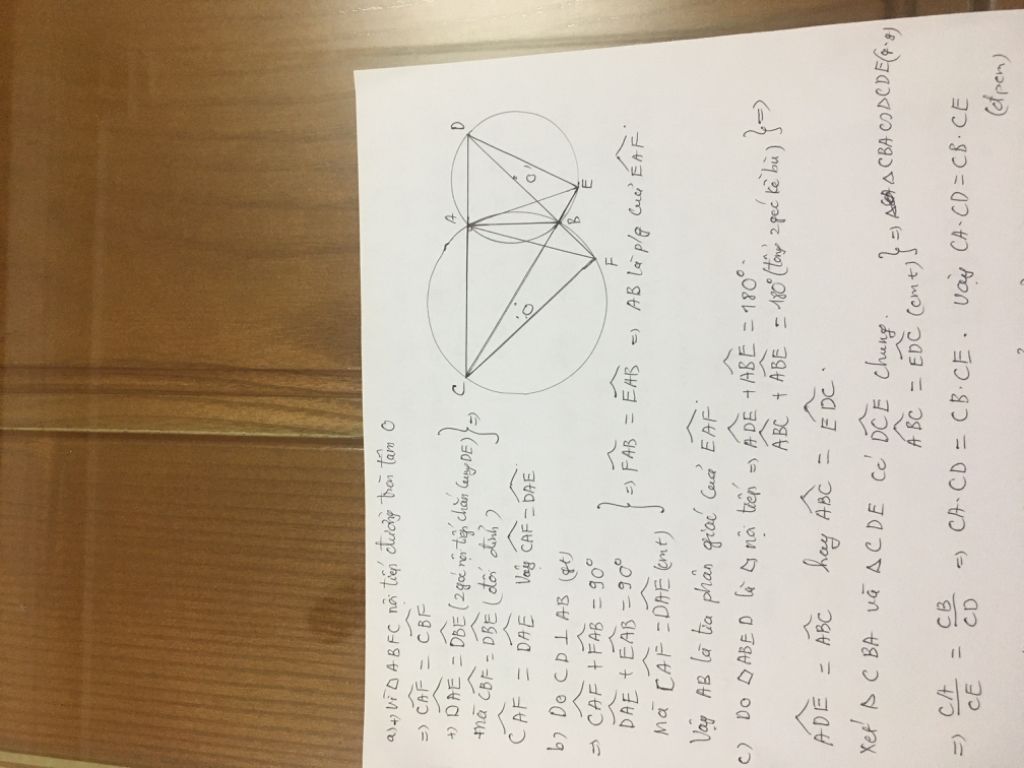 a) +) Vì ◊ ABFC nội tiếp đường tròn tâm O
=> CAF = CBF
+) DAE = DBE (2 góc nội tiếp chắn cung DE)
+ mà CBF = DBE (đối đỉnh) } =>
CAF = DAE Vậy CAF = DAE.
C
A
D
O
O'
B
E
F
b) Do CD ⊥ AB (gt)
=> CAF + FAB = 90°
DAE + EAB = 90°
Mà CAF = DAE (cmt) } => FAB = EAB => AB là p/g của EAF.
Vậy AB là tia phân giác của EAF.
c) Do ◊ ABED là ◊ nội tiếp => ADE + ABE = 180°.
ABC + ABE = 180° (tổng 2 góc kề bù) } =>
ADE = ABC hay ABC = EDC.
Xét Δ CBA và Δ CDE có DCE chung.
ABC = EDC (cmt) } => Δ CBA ∽ Δ CDE (g.g)
=> CA/CE = CB/CD => CA·CD = CB·CE. Vậy CA·CD = CB·CE
(đpcm)